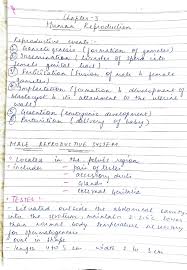 Chapter-3
Human Reproduction
Reproductive events:-
Gametogenesis (formation of gametes)
Insemination (transfer of sperm into female genital tract)
Fertilisation (fusion of male & female gametes)
Implantation (formation & development of blastocyst & its attachment to the uterine wall)
Gestation (embryonic development)
Parturition (delivery of baby)
MALE REPRODUCTIVE SYSTEM
Located in the pelvis region
Include - pair of testes
- accessory ducts
- glands
- external genitalia
TESTES:
Situated outside the abdominal cavity
into the scrotum, maintain 2-2.5°C lower
than normal body temperature necessary
for spermatogenesis
oval in shape
length 4 to 5 cm width 2 to 3 cm